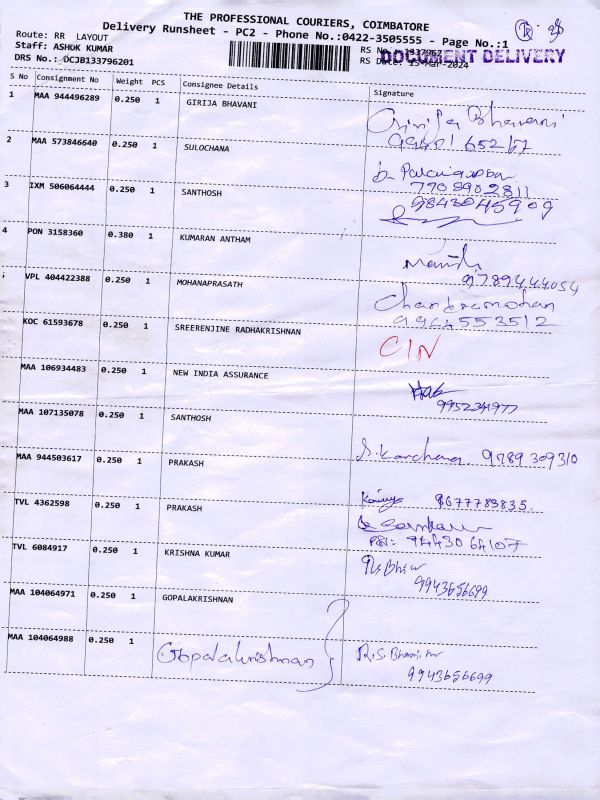 THE PROFESSIONAL COURIERS, COIMBATORE
Delivery Runsheet - PC2 - Phone No.:0422-3505555 - Page No.:1
Route: RR LAYOUT
Staff: ASHOK KUMAR
DRS No.: DCJB133796201
RS No
DOCUMENT DELIVERY
RS Date: 15-Mar-2024
S No Consignment No Weight PCS Consignee Details Signature
1 MAA 944496289 0.250 1 GIRIJA BHAVANI Girija Bhavani
2 MAA 573846640 0.250 1 SULOCHANA
7708902811
3 IXM 506064444 0.250 1 SANTHOSH 9843045909
4 PON 3158360 0.380 1 KUMARAN ANTHAM
9789444054
VPL 404422388 0.250 1 MOHANAPRASATH Chandramohan
KOC 61593678 0.250 1 SREERENJINE RADHAKRISHNAN CIN
MAA 106934483 0.250 1 NEW INDIA ASSURANCE
MAA 107135078 0.250 1 SANTHOSH S. Kanchana 9789309310
MAA 944503617 0.250 1 PRAKASH
8677783835
TVL 4362598 0.250 1 PRAKASH
9443064107
TVL 6084917 0.250 1 KRISHNA KUMAR
9943656699
MAA 104064971 0.250 1 GOPALAKRISHNAN
MAA 104064988 0.250 1 Gopalakrishnan
9943656699